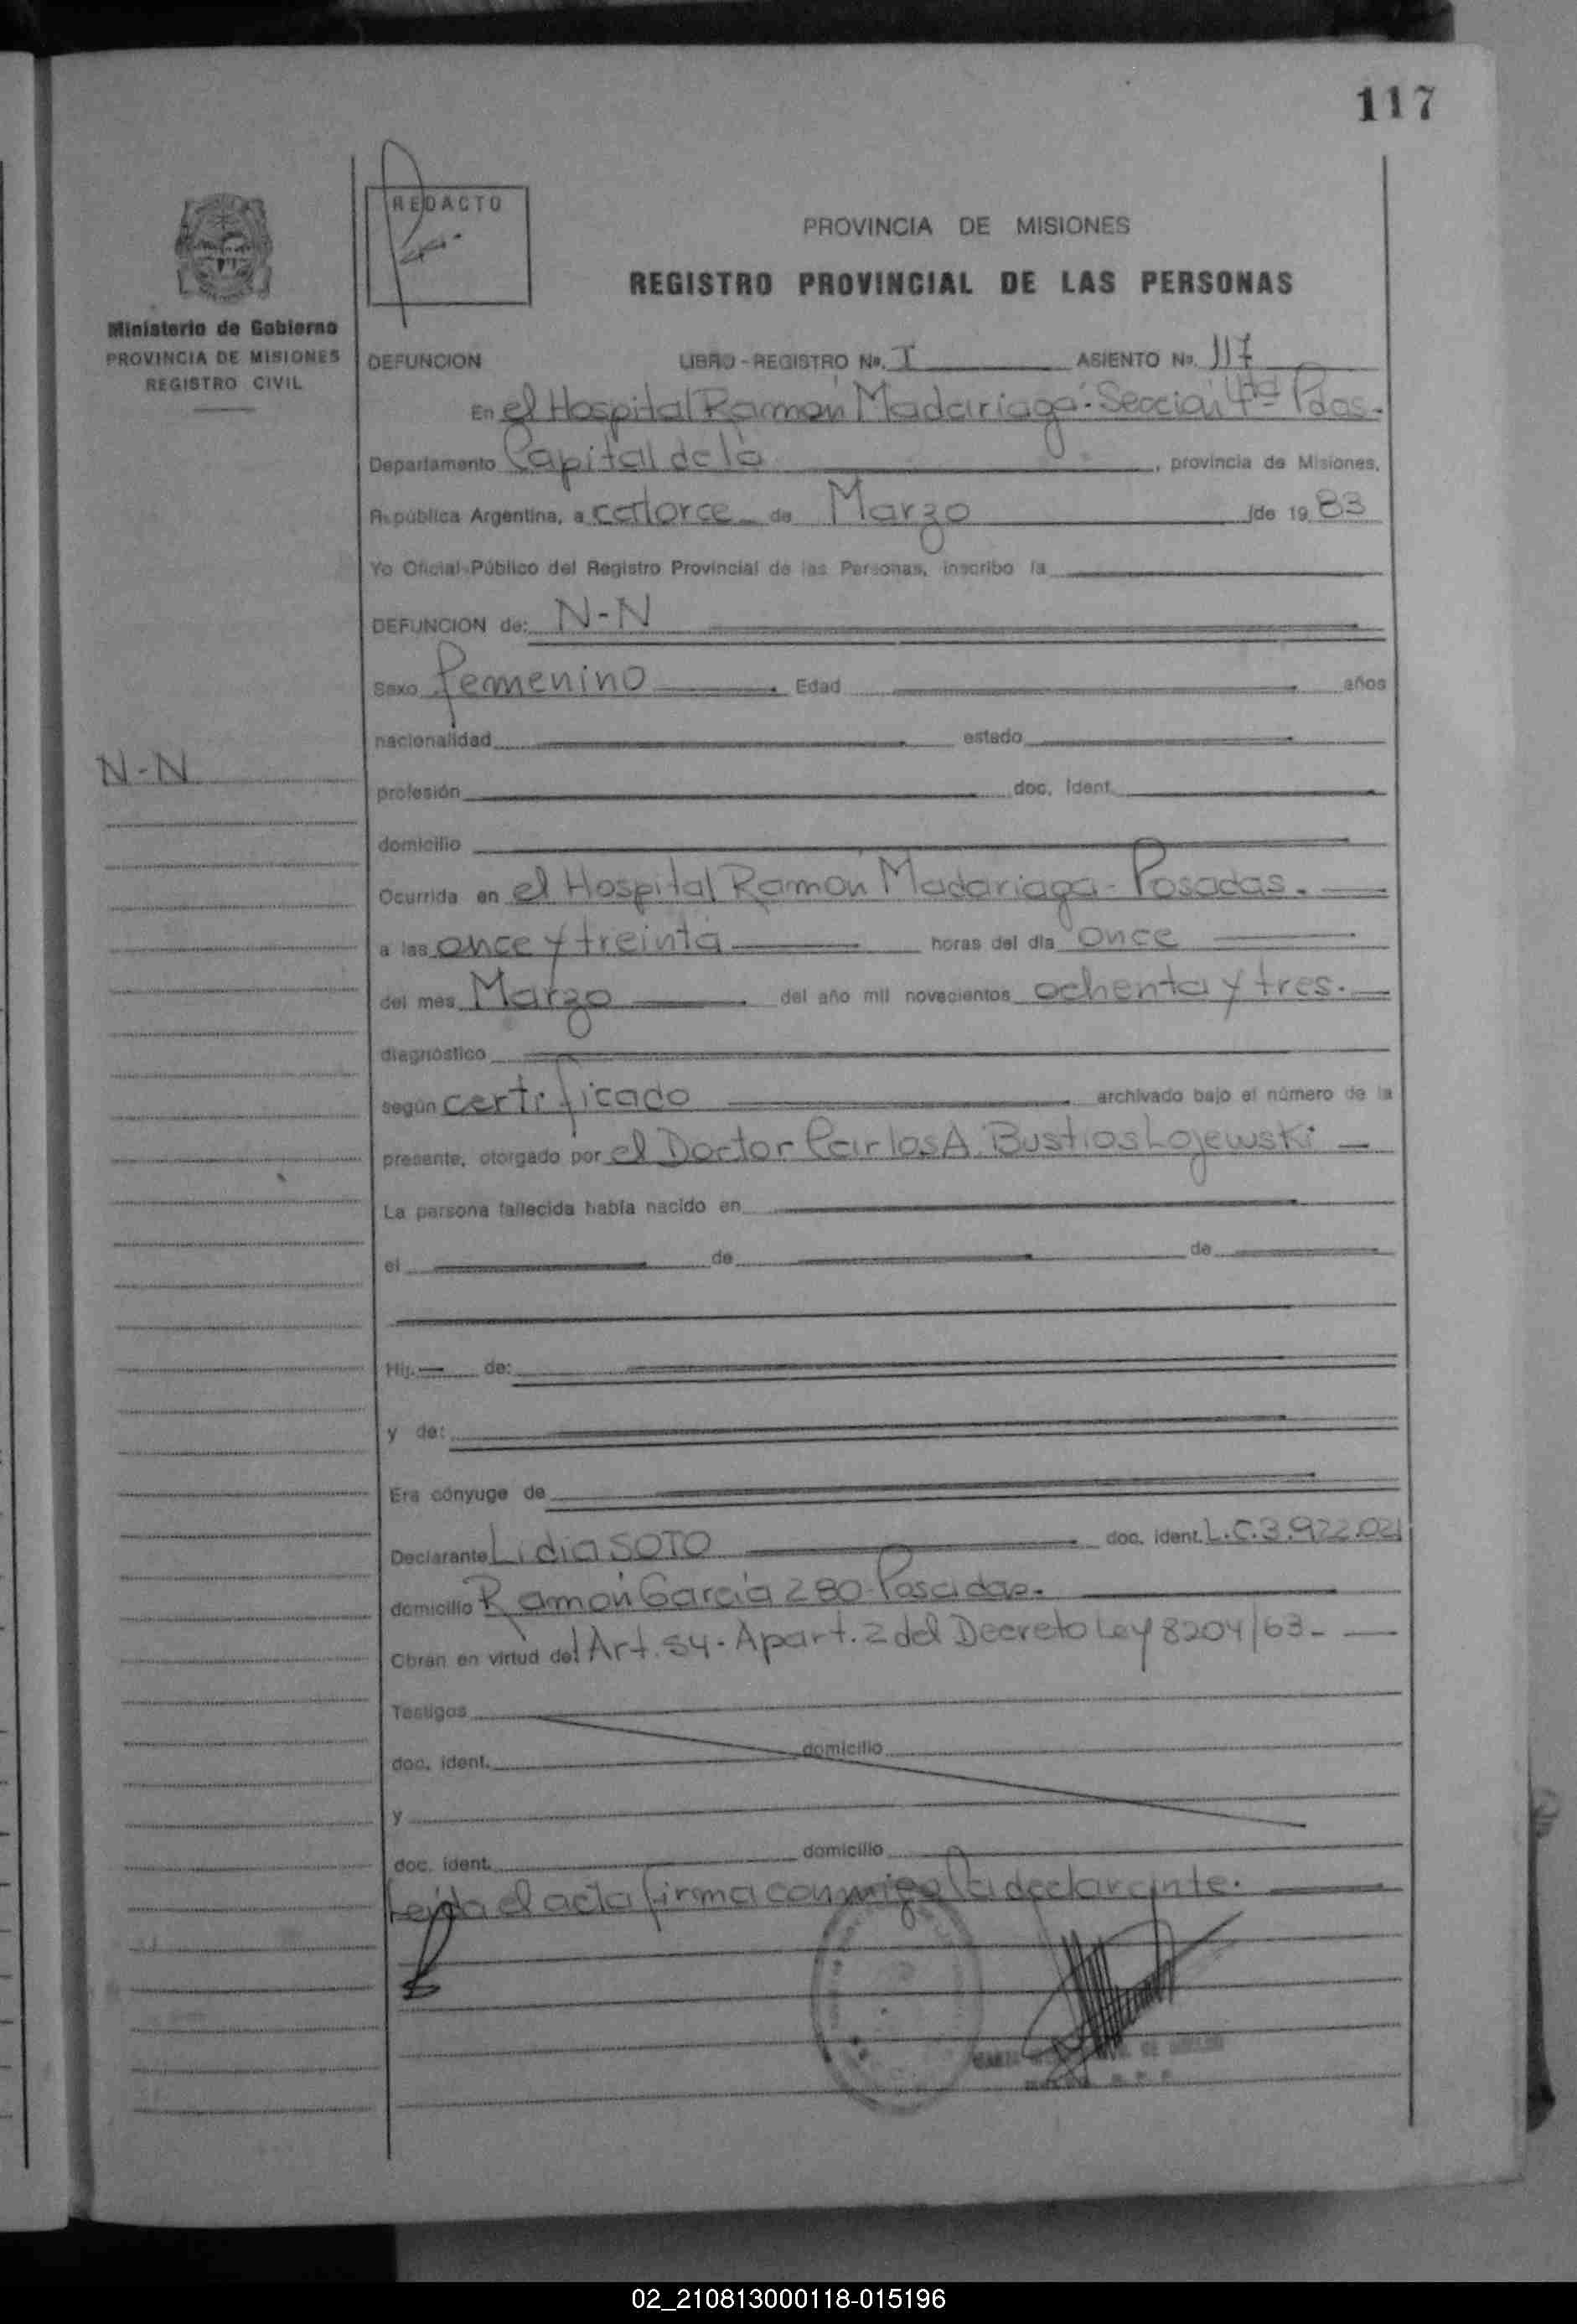 117
REDACTO
PROVINCIA DE MISIONES
REGISTRO PROVINCIAL DE LAS PERSONAS
Ministerio de Gobierno
PROVINCIA DE MISIONES
REGISTRO CIVIL
DEFUNCION LIBRO - REGISTRO No. I ASIENTO No. 117
En el Hospital Ramón Madariaga - Sección 4ta Pdas.
Departamento Capital de la , provincia de Misiones,
República Argentina, a catorce de Marzo de 19 83
Yo Oficial Público del Registro Provincial de las Personas, inscribo la
DEFUNCION de: N-N
Sexo femenino Edad años
nacionalidad estado
N-N
profesión doc. ident.
domicilio
Ocurrida en el Hospital Ramón Madariaga - Posadas.
a las once y treinta horas del día once
del mes Marzo del año mil novecientos ochenta y tres.
diagnóstico
según certificado archivado bajo el número de la
presente, otorgado por el Doctor Carlos A. Bustios Lojewski
La persona fallecida había nacido en
el de de
Hij. de:
y de:
Era cónyuge de
Declarante Lidia SOTO doc. ident. L.C. 3.922.021
domicilio Ramón García 280 - Posadas.
Obran en virtud del Art. 54 - Apart. 2 del Decreto Ley 8204/63 -
Testigos
doc. ident. domicilio
y
doc. ident. domicilio
Leída el acta firma conmigo la declarante.
02_210813000118-015196